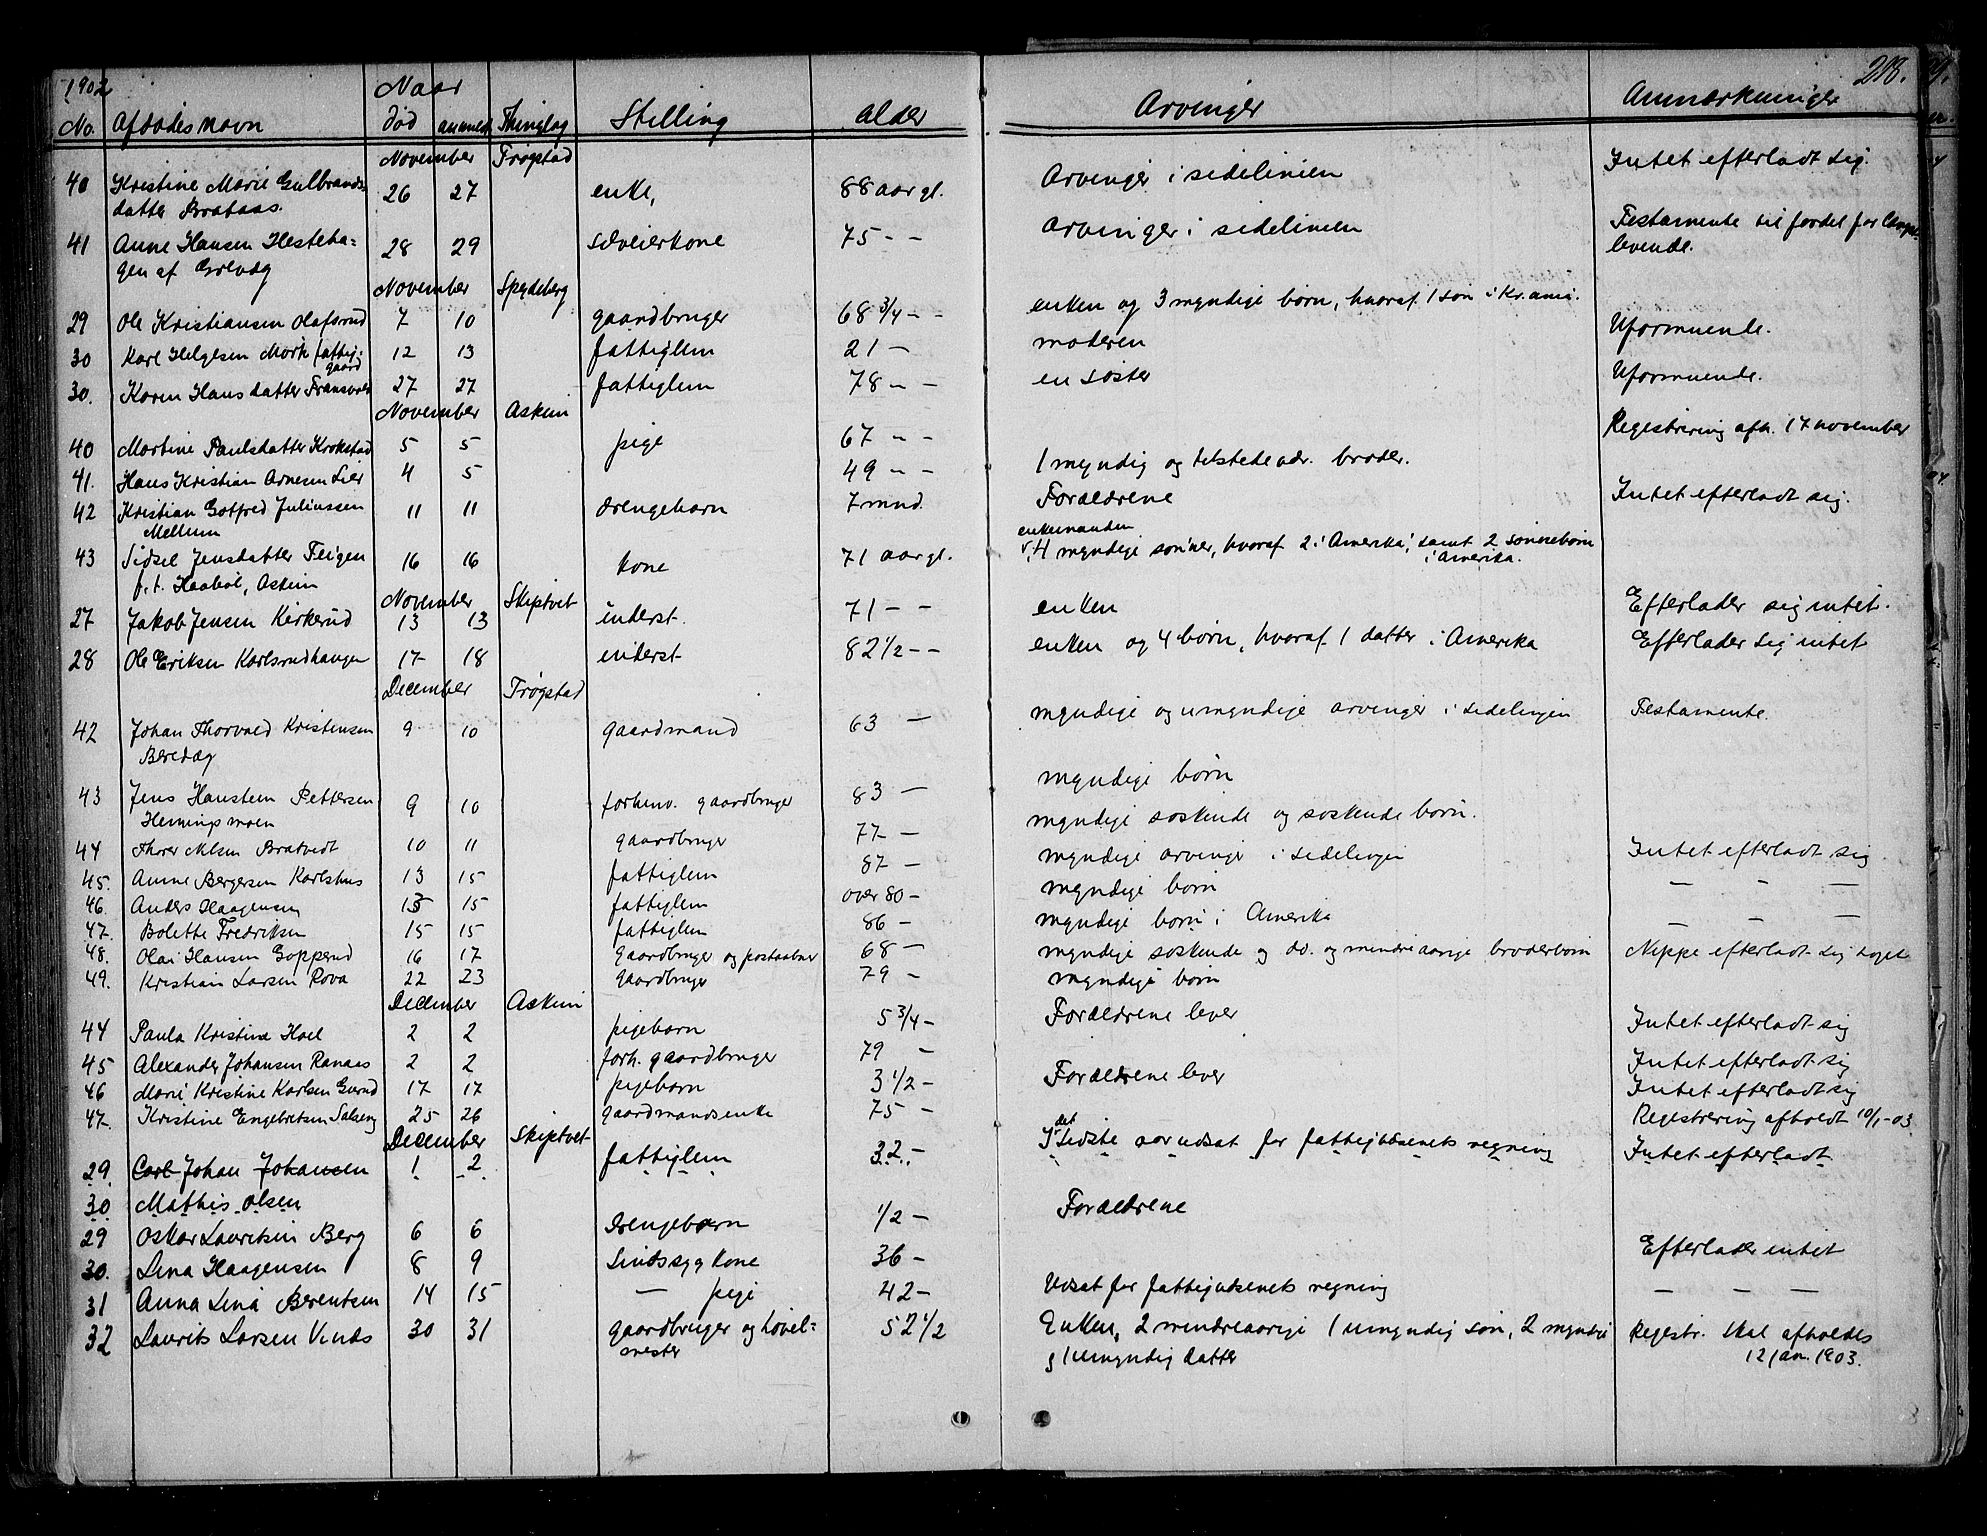 1902 Naar 218.
No. Afdødes navn død anmeld Thinglag Stilling alder Arvinger Anmærkninger
November Trøgstad
40 Kristine Marie Gulbrands- 26 27 enke, 88 aar gl. Arvinger i sidelinien Intet efterladt sig.
datter Brataas.
41 Anne Hansen Hesteha- 28 29 selveierkone 75 - - Arvinger i sidelinien Testamente til fordel for længst-
gen af levende.
November Spydeberg
29 Ole Kristiansen Olafsrud 7 10 gaardbruger 68 3/4 - - enken og 3 myndige børn, hvoraf 1 søn i Kr.ania.
30 Karl Helgesen Mørk fattig- 12 13 fattiglem 21 - moderen Uformuende.
gaard
30. Karen Hansdatter 27 27 fattiglem 78 - - en søster Uformuende.
November Askim
40 Martine Paulsdatter Krokstad 5 5 pige 67 - - Registrering afh. 17 november
41. Hans Kristian Arnesen Lier 4 5 49 - - 1 myndig og tilstedevær. broder.
42 Kristian Gotfred Juliussen 11 11 drengebarn 7 mnd. Forældrene Intet efterladt sig.
Mellum
43 Sidsel Jensdatter Feigen 16 16 kone 71 aar gl. enkemanden
4 myndige sønner, hvoraf 2 i Amerika, samt 2 sønnebørn
f. t. Haabøl, Askim i Amerika.
November Skiptvet
27 Jakob Jensen Kirkerud 13 13 inderst. 71 - - enken Efterlader sig intet.
28 Ole Eriksen Karlsrudhaugen 17 18 inderst 82 1/2 - - enken og 4 børn, hvoraf 1 datter i Amerika Efterlader sig intet
December Trøgstad
42 Johan Thorvald Kristensen 9 10 gaardmand 63 - myndige og umyndige arvinger i sidelinjen Testamente.
43 Jens Hansteen Pettersen 9 10 forhenv. gaardbruger 83 - myndige børn
Hemingsmoen
44 Thorer Nilsen Bratvedt 10 11 gaardbruger 77 - myndige søskende og søskende børn.
45. Anne Bergersen Karlshus 13 15 fattiglem 87 - myndige arvinger i sidelinjen Intet efterladt sig
46. Anders Haagensen 13 15 fattiglem over 80 - myndige børn - - -
47. Bolette Fredriksen 15 15 fattiglem 86 - myndige børn i Amerika - - -
48. Olai Hansen Gopperud 16 17 Gaardbruger og postaabner 68 - myndige søskende og do. og mindreaarige broderbørn Neppe efterladt sig noget
49. Kristian Larsen Rova 22 23 Gaardbruger 79 - myndige børn
December Askim
44 Paula Kristine Hoel 2 2 pigebarn 5 3/4 - Forældrene lever Intet efterladt sig
45 Alexander Johansen Ranaas 2 2 forh. gaardbruger 79 - Intet efterladt sig
46 Marie Kristine Karlsen Grerud 17 17 pigebarn 3 1/2 - Forældrene lever Intet efterladt sig
47. Kristine Engebretsen Salberg 25 26 gaardmandsenke 75 - Registrering afholdt 10/1-03
December Skiptvet
29 Carl Johan Johansen 1 2 fattiglem 32 - I det sidste aar udsat for fattigvæsenets regning Intet efterladt
30 Mathis Olsen
29 Oskar Lauritsen Berg 6 6 Drengebarn 1/2 - Forældrene
30. Lina Haagensen 8 9 Sindssyg kone 36 - Efterlader intet
31 Anna Lina Berentsen 14 15 - pige 42 - Udsat for fattigvæsenets regning - - -
32 Laurits Larsen Vinds 30 31 gaardbruger og høvel- 52 1/2 Enken, 2 mindreaarige 1 umyndig søn, 2 myndige Registr. skal afholdes
mester g 1 umyndig datter 12 jan. 1903.